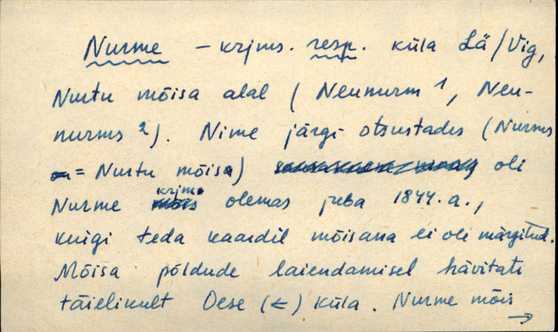 Nurme – krjms. resp. küla Lä/Vig,
Nurtu mõisa alal (Neunurm 1, Neu-
nurms 2). Nime järgi otsustades (Nurms
= Nurtu mõisa) oli
Nurme krjms olemas juba 1844. a.,
kuigi teda kaardil mõisana ei oli märgitud.
Mõisa põldude laiendamisel hävitati
täielikult Oese (←) küla. Nurme mõis
→